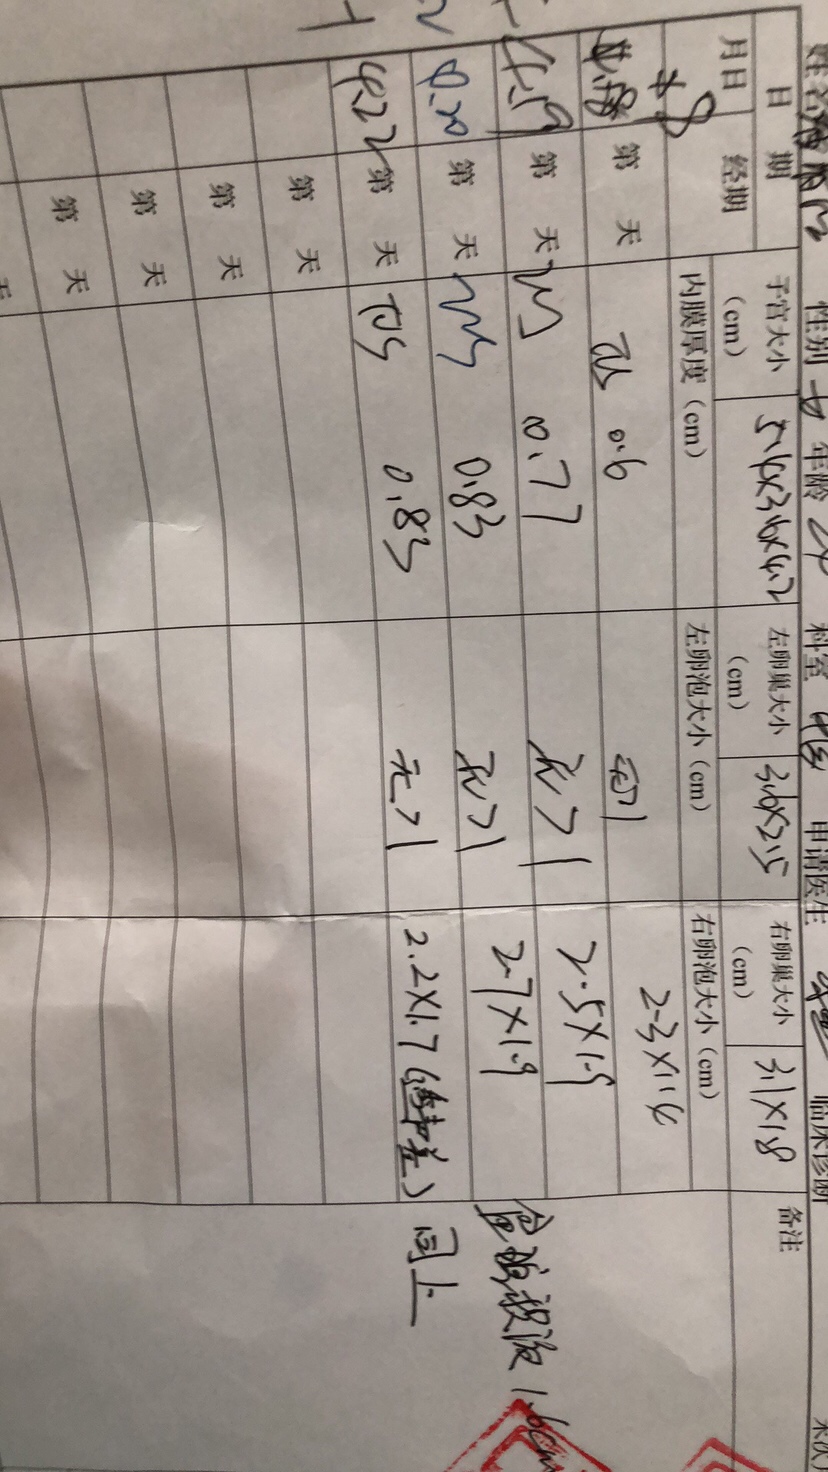 性别 女 年龄 科室 申请医生 临床诊断
日期 子宫大小(cm) 5.6×3.6×4.2 左卵巢大小(cm) 3.6×2.5 右卵巢大小(cm) 3.1×1.8 备注
月日 经期 内膜厚度(cm) 左卵泡大小(cm) 右卵泡大小(cm)
第 天 0.6 无>1 2.3×1.6
4.19 第 天 0.77 无>1 2.5×1.9
4.20 第 天 0.83 无>1 2.7×1.9 盆腔积液1.6cm
4.22 第 天 0.83 无>1 2.2×1.7(边界差) 同上
第 天
第 天
第 天
第 天
天